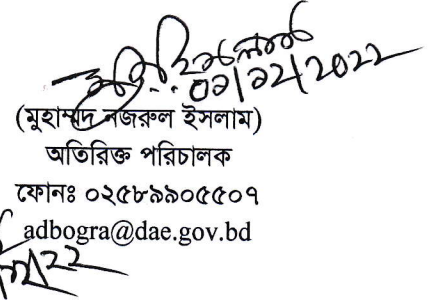 ০১/১২/২০২২
(মুহাম্মদ নজরুল ইসলাম)
অতিরিক্ত পরিচালক
ফোনঃ ০২৫৮৯৯০৫৫০৭
adbogra@dae.gov.bd